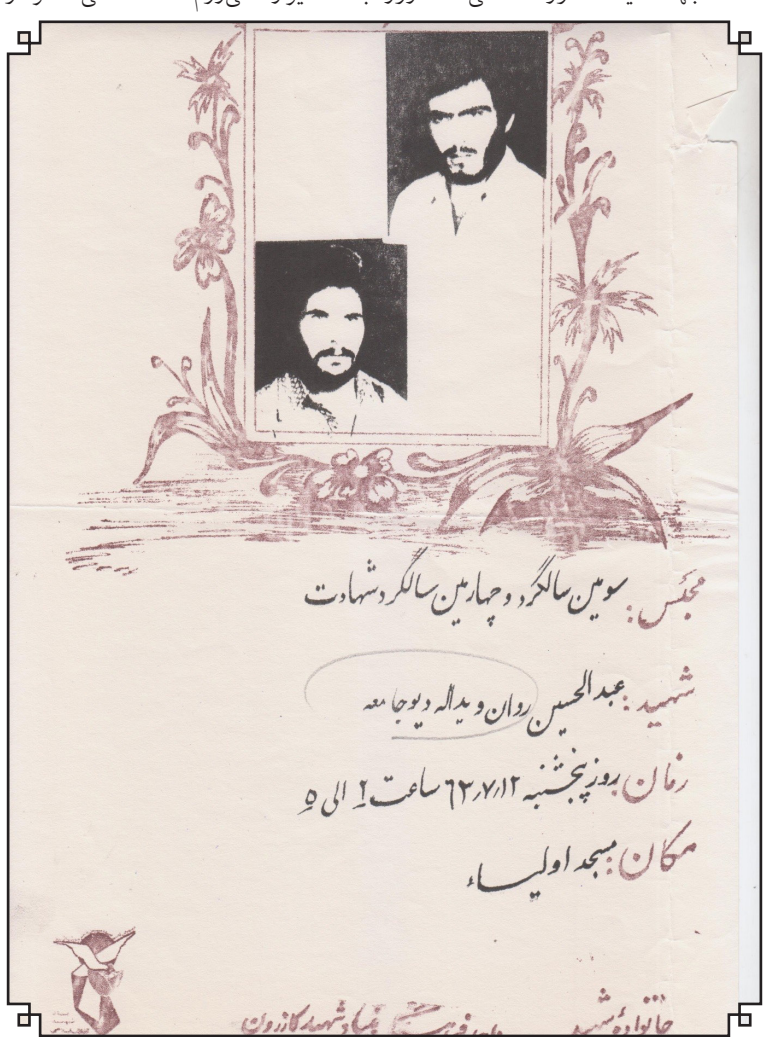 مجلس: سومین سالگرد و چهارمین سالگرد شهادت
شهید: عبدالحسین روان و یداله دیوجامعه
زمان: روز پنجشنبه ۶۳٫۷٫۱۲ ساعت ۲ الی ۵
مکان: مسجد اولیاء
خانوادهٔ شهید بنیاد شهید کازرون